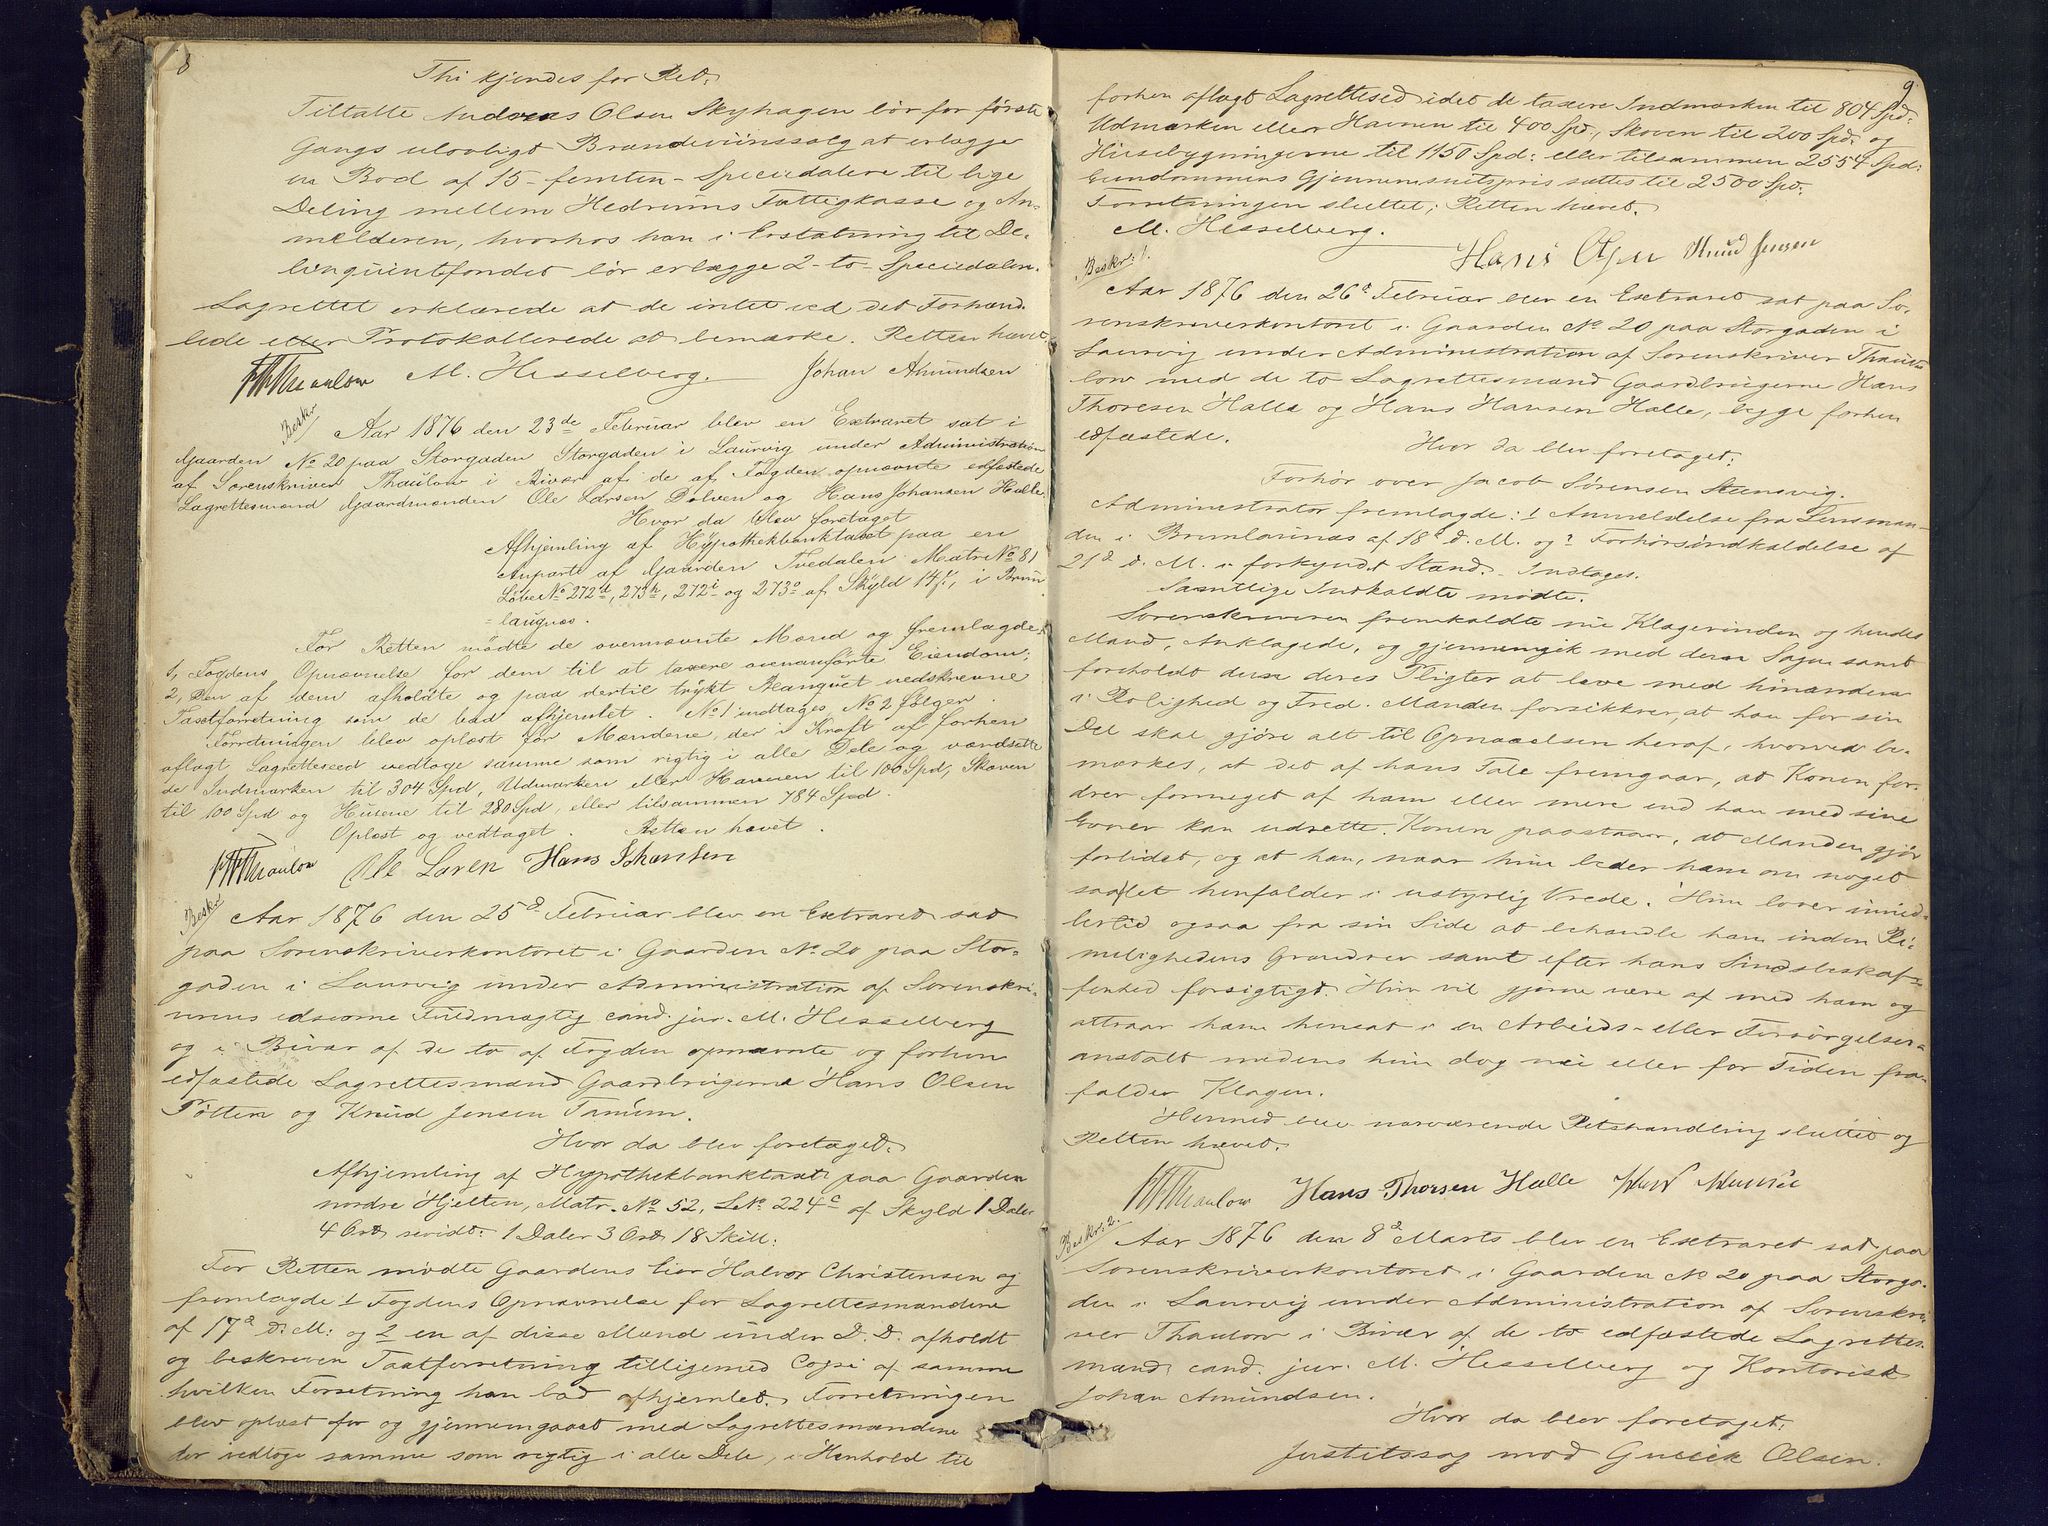 8
Thi kjendes for Ret:
Tiltalte Andreas Olsen Skyhagen bör for første
Gangs ulovligt Brændeviinssalg at erlægge
en Bod af 15 - femten - Speciedaler til lige
Deling mellem Hedrums Fattigkasse og An-
melderen, hvorhos han i Erstatning til De-
linquentfondet bör erlægge 2 - to - Speciedaler.
Lagrettet erklærede at de intet ved det Forhand-
lede eller Protokollerede at bemærke. Retten hævet
Thaulow M. Hesselberg. Johan Amundsen
Beskr
Aar 1876 den 23de Februar blev en Extraret sat i
Gaarden No 20 paa Storgaden Storgaden i Laurvig under Administration
af Sorenskriver Thaulow i Bivær af de af Fogden opnævnte edfæstede
Lagrettesmænd Gaardmændene Ole Larsen Dolven og Hans Johansen Halle.
Hvor da blev foretaget
Afhjemling af Hypothekbanktaxt paa en
Anpart af Gaarden Tvedalen Matr No 81
Löbe No 272d, 273h, 272i og 273o af Skyld 14 , i Brun-
laugnæs.
For Retten mödte de ovennævnte Mænd og fremlagde:
1, Fogdens Opnævnelse for dem til at taxere ovenanførte Eiendom,
2, Den af dem afholdte og paa dertil trykt Blanquet nedskrevne
Taxtforretning som de bad afhjemlet. No 1 indtages, No 2 fölger.
Forretningen blev oplæst for Mændene, der i Kraft af forhen
aflagt Lagretteseed vedtoge samme som rigtig i alle Dele og værdsatte
de Indmarken til 304 Spd, Udmarken eller Havnen til 100 Spd, Skoven
til 100 Spd og Husene til 280 Spd, eller tilsammen 784 Spd.
Oplæst og vedtaget. Retten hævet.
Thaulow Ole Larsen Hans Johansen
Beskr
Aar 1876 den 25d Februar blev en Extraret sat
paa Sorenskriverkontoret i Gaarden No 20 paa Stor-
gaden i Laurvig under Administration af Sorenskri-
verens edsvorne Fuldmægtig cand. jur. M. Hesselberg
og i Bivær af de to af Fogden opnævnte og forhen
edfæstede Lagrettesmænd Gaardbrugerne Hans Olsen
Tötten og Knud Jensen Tanum.
Hvor da blev foretaget:
Afhjemling af Hypothekbanktaxt paa Gaarden
nordre Hjelten, Matr. No 52, L No. 224c af Skyld 1 Daler
4 Ort revidt: 1 Daler 3 Ort 18 Skill:
For Retten mödte Gaardens Eier Halvor Christensen og
fremlagde 1 Fogdens Opnævnelse for Lagrettesmændene
af 17d d: M: og 2 en af disse Mænd under D. D. afholdt
og beskreven Taxtforretning tilligemed Copi af samme
hvilken Forretning han bad afhjemlet. Forretningen
blev oplæst for og gjennemgaaet med Lagrettesmændene
der vedtoge samme som rigtig i alle Dele, i Henhold til
9
forhen aflagt Lagretteseed idet de taxere Indmarken til 804 Spd:
Udmarken eller Havnen til 400 Spd:, Skoven til 200 Spd: og
Husebygningerne til 1150 Spd: eller tilsammen 2554 Spd:
Eiendommens Gjennemsnitspris sættes til 2500 Spd:
Forretningen sluttet; Retten hævet.
M. Hesselberg. Hans Olsen Knud Jensen
Beskr: 1.
Aar 1876 den 26d Februar blev en Extraret sat paa So-
renskriverkontoret i Gaarden No 20 paa Storgaden i
Laurvig under Administration af Sorenskriver Thau-
low med de to Lagrettesmænd Gaardbrugerne Hans
Thoresen Halle og Hans Hansen Halle, begge forhen
edfæstede.
Hvor da blev foretaget:
Forhör over Jacob Sörensen Stensvig.
Administrator fremlagde: 1 Anmeldelse fra Lensman-
den i Brunlannæs af 18d d. M. og 2 Forhörsindkaldelse af
21d d. M. i forkyndt Stand. - Indtages.
Samtlige Indkaldte mödte.
Sorenskriveren fremkaldte nu Klagerinden og hendes
Mand, Anklagede, og gjennemgik med dem Sagen samt
foreholdt dem deres Pligter at leve med hinanden
i Rolighed og Fred. Manden forsikkrer, at han for sin
Del skal gjöre alt til Opnaaelsen heraf, hvorved be-
mærkes, at det af hans Tale fremgaar, at Konen for-
drer formeget af ham eller mere end han med sine
Evner kan udrette. Konen paastaar, at Manden gjör
forlidet, og at han, naar hun beder ham om noget
saa let henfalder i ustyrlig Vrede. Hun lover imid-
lertid ogsaa fra sin Side at behandle ham inden Ri-
melighedens Grændser samt efter hans Sindsbeskaf-
fenhed forsigtigt. Hun vil gjerne være af med ham og
attraar ham hensat i en Arbeids- eller Forsörgelses-
anstalt medens hun dog nu eller for Tiden fra-
falder Klagen.
Hermed blev nærværende Retshandling sluttet og
Retten hævet.
Thaulow Hans Thorsen Halle
Beskr: 2.
Aar 1876 den 8d Marts blev en Extraret sat paa
Sorenskriverkontoret i Gaarden No 20 paa Storga-
den i Laurvig under Administration af Sorenskri-
ver Thaulow i Bivær af de to edfæstede Lagrettes-
mænd cand. jur. M. Hesselberg og Kontorist
Johan Amundsen.
Hvor da blev foretaget:
Justitssag mod Gullik Olsen.